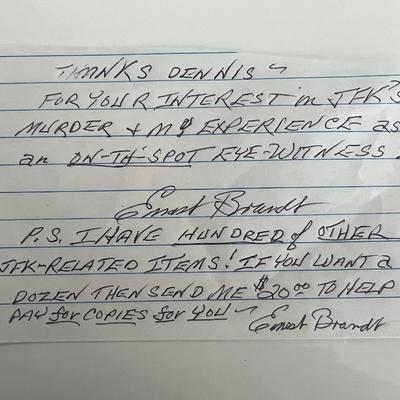 THANKS DENNIS ~
FOR YOUR INTEREST in JFK's
MURDER + MY EXPERIENCE as
an ON-TH-SPOT EYE-WITNESS.
Ernest Brandt
P.S. I HAVE HUNDRED of OTHER
JFK-RELATED ITEMS! IF YOU WANT a
DOZEN THEN SEND ME $20.00 TO HELP
PAY for COPIES for YOU ~
Ernest Brandt